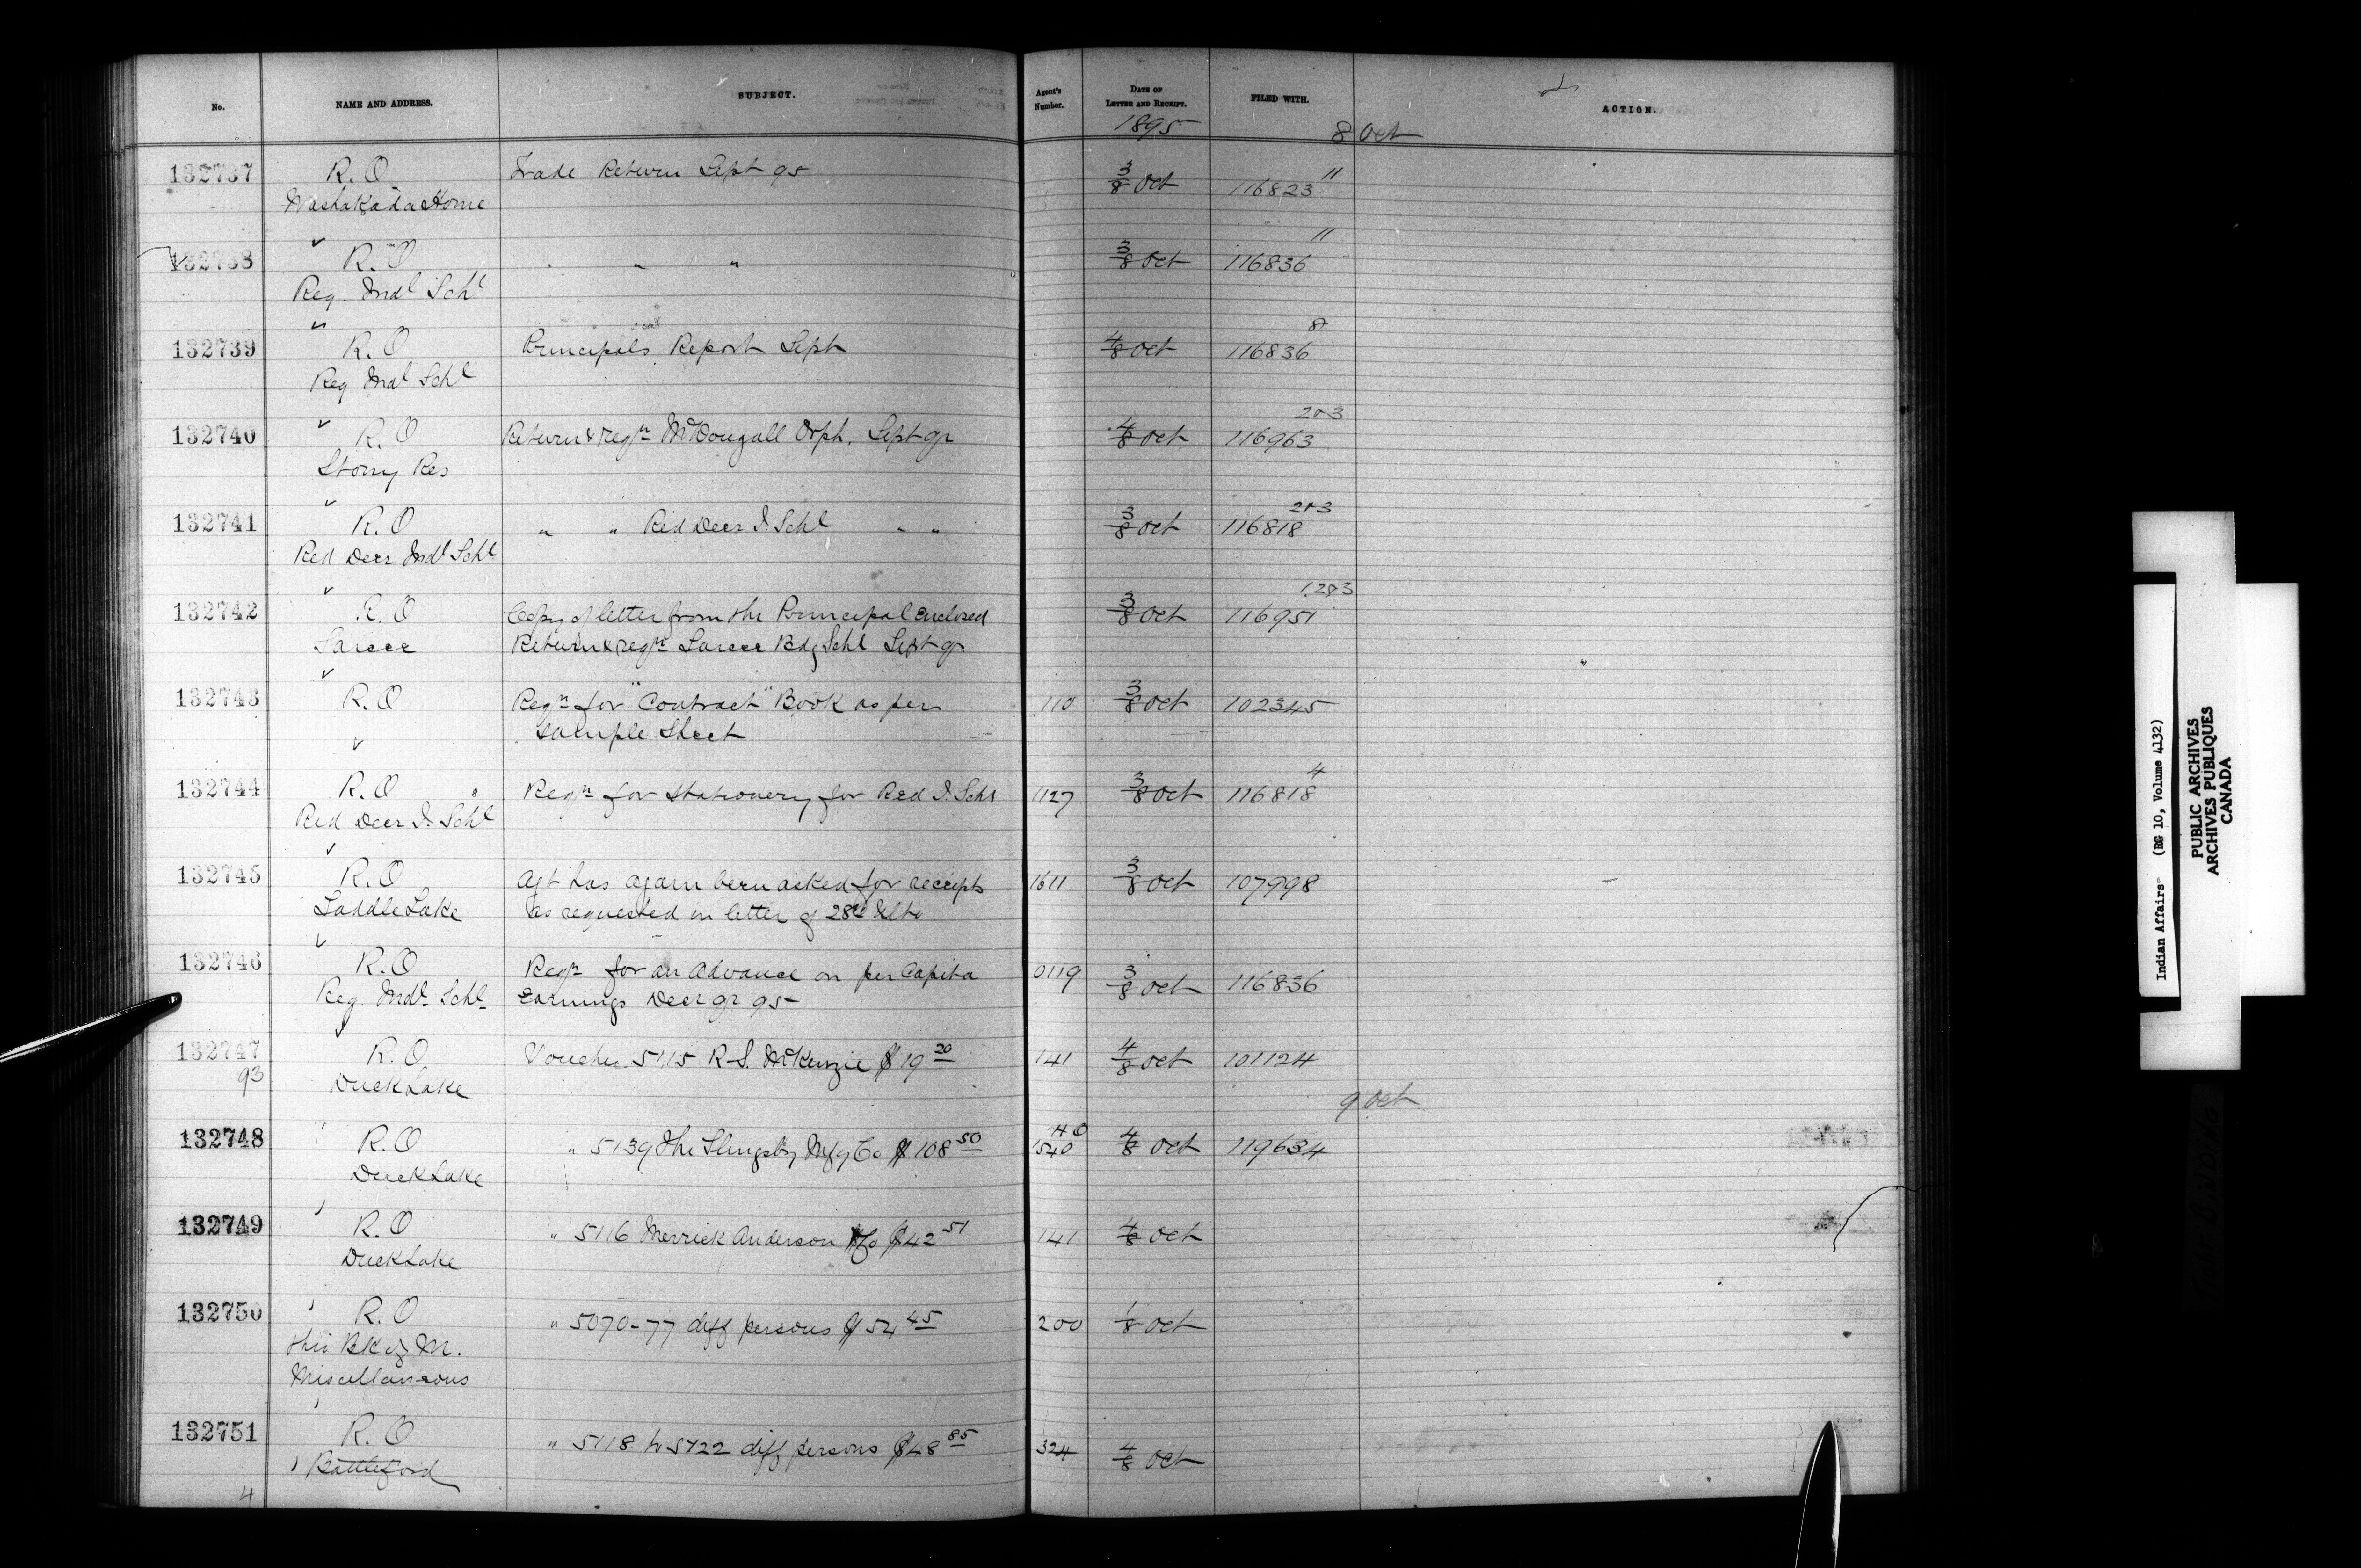 No. NAME AND ADDRESS. SUBJECT. Agent's Number. DATE OF LETTER AND RECEIPT. FILED WITH. ACTION.
1895 8 Oct
132737 R.O Trade Return Sept 95 3/8 Oct 116823 11
Washakada Home
132738 R.O " " " 3/8 Oct 116836 11
Reg. Indl Schl
132739 R.O Principals Report Sept 4/8 Oct 116836 8
Reg Indl Schl
132740 R.O Return & reqn McDougall Orph. Sept qr 4/8 Oct 116963 2+3
Stony Res
132741 R.O " " Red Deer I. Schl " " 3/8 Oct 116818 2+3
Red Deer Indl Schl
132742 R.O Copy of letter from the Principal Enclosed 3/8 Oct 116951 1.2+3
Sarcee Return & reqn Sarcee Bdg Schl Sept qr
132743 R.O Reqn for "Contract" Book as per 110 3/8 Oct 102345
Sample Sheet
132744 R.O Reqn for Stationery for Red I. Schl 1127 3/8 Oct 116818 4
Red Deer I. Schl
132745 R.O Agt has again been asked for receipts 1611 3/8 Oct 107998
Saddle Lake as requested in letter of 28th Ulto
132746 R.O Reqn for an Advance on per Capita 0119 3/8 Oct 116836
Reg. Indl. Schl. Earnings Decr qr 95
132747 R.O Voucher 5115 R.S. McKenzie $19 20 141 4/8 Oct 101124
93 Duck Lake
9 Oct
132748 R.O " 5139 The Slingsby Mfg Co $108 50 HO 1540 4/8 Oct 119634
Duck Lake
132749 R.O " 5116 Merrick Anderson & Co $42 51 141 4/8 Oct
Duck Lake
132750 R.O " 5070-77 diff persons $54 45 200 1/8 Oct
thro Bk of M.
Miscellaneous
132751 R.O " 5118 to 5122 diff persons $48 85 324 4/8 Oct
Battleford
4
Indian Affairs (RG 10, Volume 4132)
PUBLIC ARCHIVES
ARCHIVES PUBLIQUES
CANADA